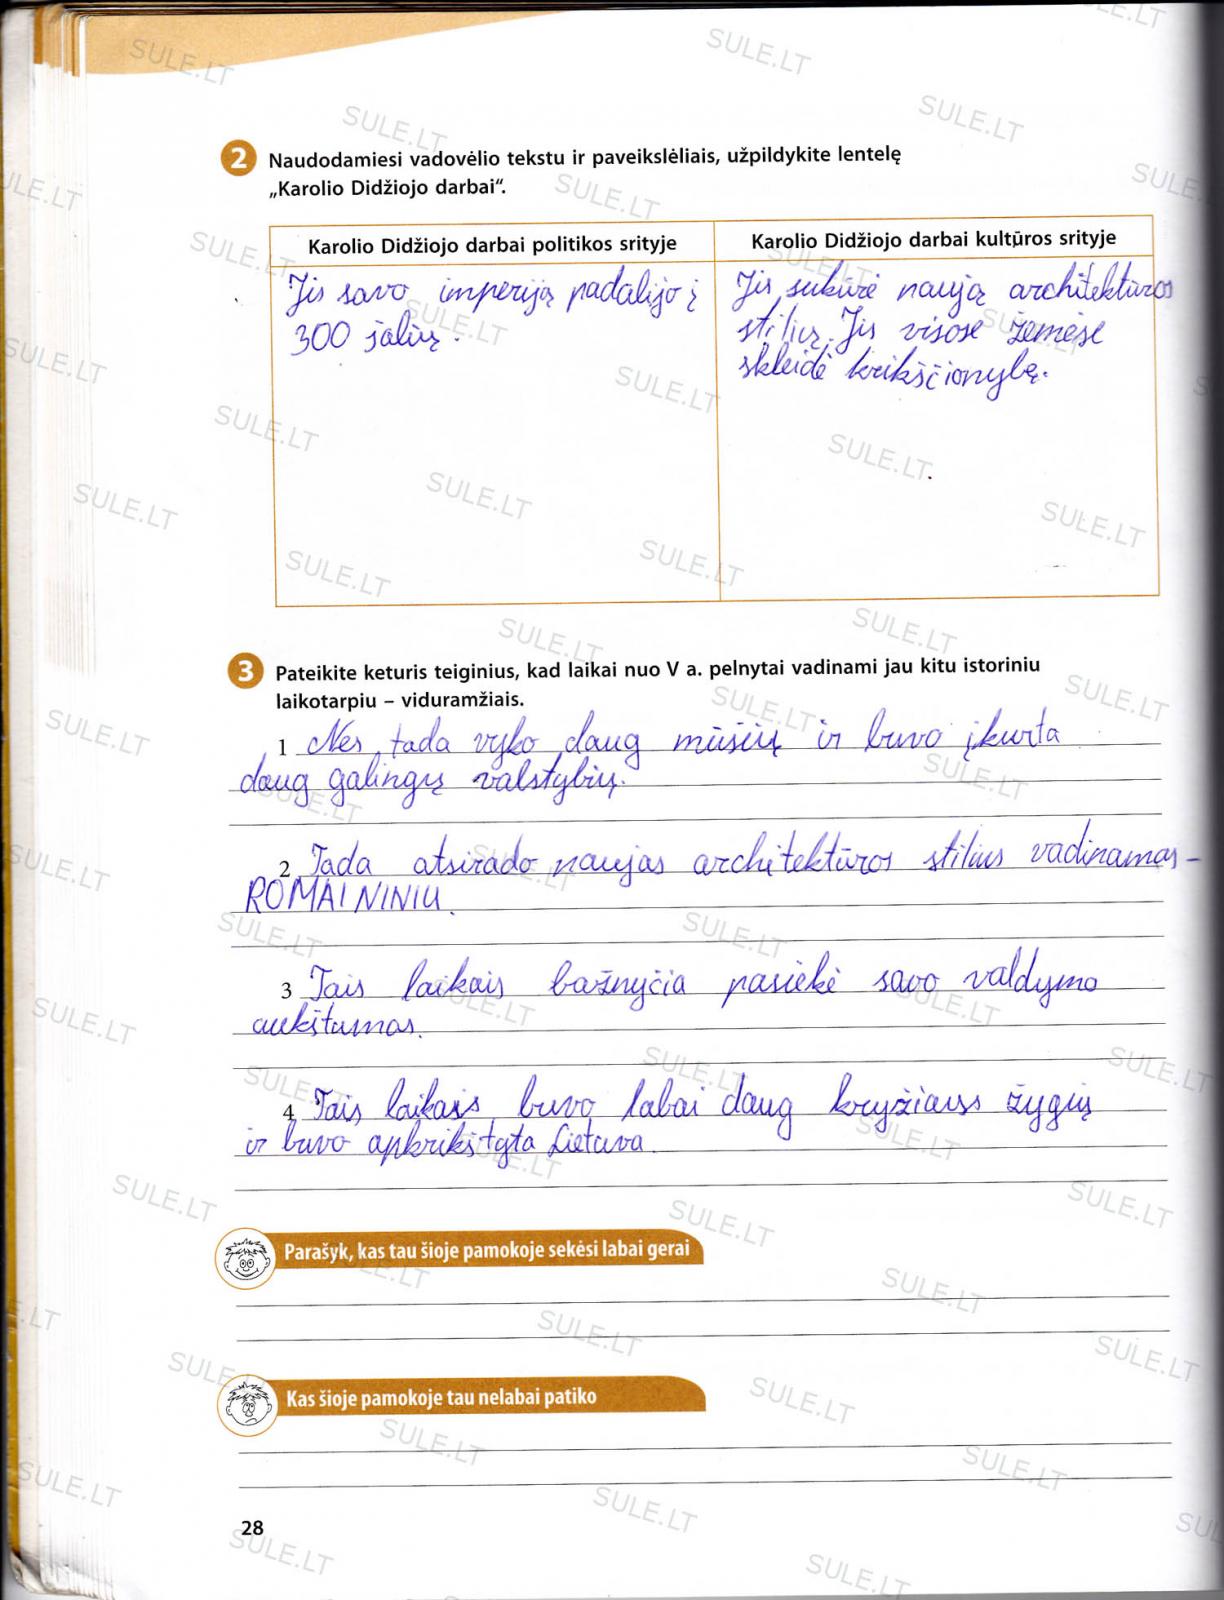 2 Naudodamiesi vadovėlio tekstu ir paveikslėliais, užpildykite lentelę
„Karolio Didžiojo darbai“.
Karolio Didžiojo darbai politikos srityje
Jis savo imperiją padalijo į
300 šalių.
Karolio Didžiojo darbai kultūros srityje
Jis sukūrė naują architektūros
stilių. Jis visose žemėse
skleidė krikščionybę.
3 Pateikite keturis teiginius, kad laikai nuo V a. pelnytai vadinami jau kitu istoriniu
laikotarpiu – viduramžiais.
1 Nes tada vyko daug mūšių ir buvo įkurta
daug galingų valstybių.
2 Tada atsirado naujas architektūros stilius vadinamas -
ROMAININIU.
3 Tais laikais bažnyčia pasiekė savo valdymo
aukštumas.
4 Tais laikais buvo labai daug kryžiaus žygių
ir buvo apkrikštyta Lietuva.
Parašyk, kas tau šioje pamokoje sekėsi labai gerai
Kas šioje pamokoje tau nelabai patiko
28
SULE.LT